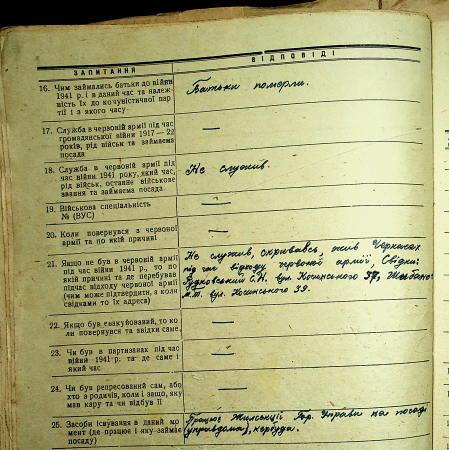 ЗАПИТАННЯ
ВІДПОВІДІ
16. Чим займались батьки до війни
1941 р. і в даний час та належ-
ність їх до комуністичної пар
тії і з якого часу
Батьки померли.
17. Служба в червоній армії під час
громадянської війни 1917—22
років, рід військ та займаєма
посада
—
18. Служба в червоній армії під
час війни 1941 року, який час,
рід військ, останнє військове
звання та займаєма посада
Не служив.
19. Військова спеціальність
№ (ВУС)
—
20. Коли повернувся з червоної
армії та по якій причині
—
21. Якщо не був в червоній армії
під час війни 1941 р., то по
якій причині та де перебував
підчас відходу червоної армії
(чим може підтвердити, а коли
свідками то їх адреса)
Не служив, скривавсь, жив Черкасах
під час відходу червоної армії. Свідки:
вул. Косинського 37,
М.Т. вул. Косинського 39.
22. Якщо був евакуйований, то ко-
ли повернувся та звідки саме.
—
23. Чи був в партизанах під час
війни 1941 р. та де саме і
який час
—
24. Чи був репресований сам, або
хто з родичів, коли і защо, яку
мав кару та чи відбув її
—
25. Засоби існування в даний мо
мент (де працює і яку займає
посаду)
Працює Гор. Управи на посаді
(управдома),